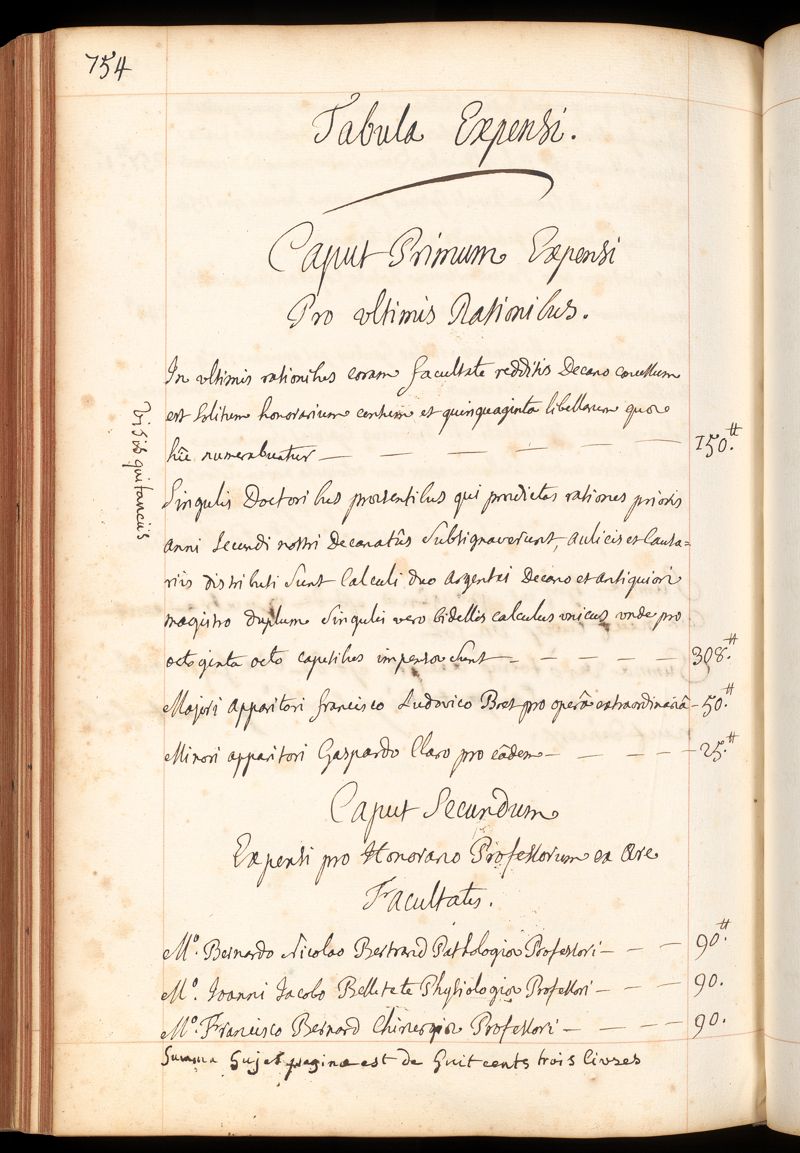 754
Tabula Expensi.
Caput Primum Expensi
Pro vltimis Rationibus.
In vltimis rationibus coram facultate redditis Decano concessum
est solitum honorarium centum et quinquaginta libellarum quæ
hîc numerabuntur — — — — — — 150.tt
Visis quitanciis
Singulis Doctoribus præsentibus qui prædictas rationes prioris
anni secundi nostri Decanatûs subsignaverunt, aulicis et
riis distributi sunt Calculi duo Argentei Decano et antiquiori
magistro duplum singulis vero bidellis calculus vnicus vnde pro
octoginta octo capitibus impensæ sunt — — — — — 308.tt
Majori Apparitori francisco Ludovico Bret pro operâ extraordinariâ — 50.tt
Minori apparitori Gaspardo Claro pro eâdem — — — — — 25.tt
Caput Secundum
Expensi pro Honorario Professorum ex Ære
Facultatis.
Mo. Bernardo Nicolao Bertrand Pathologiæ Professori — — — 90.tt
Mo. Ioanni Jacobo Belletete Physiologiæ Professori — — — — 90.
Mo. Francisco Bernard Chirurgiæ Professori — — — — 90.
Summa hujus paginæ est de huit cents trois livres